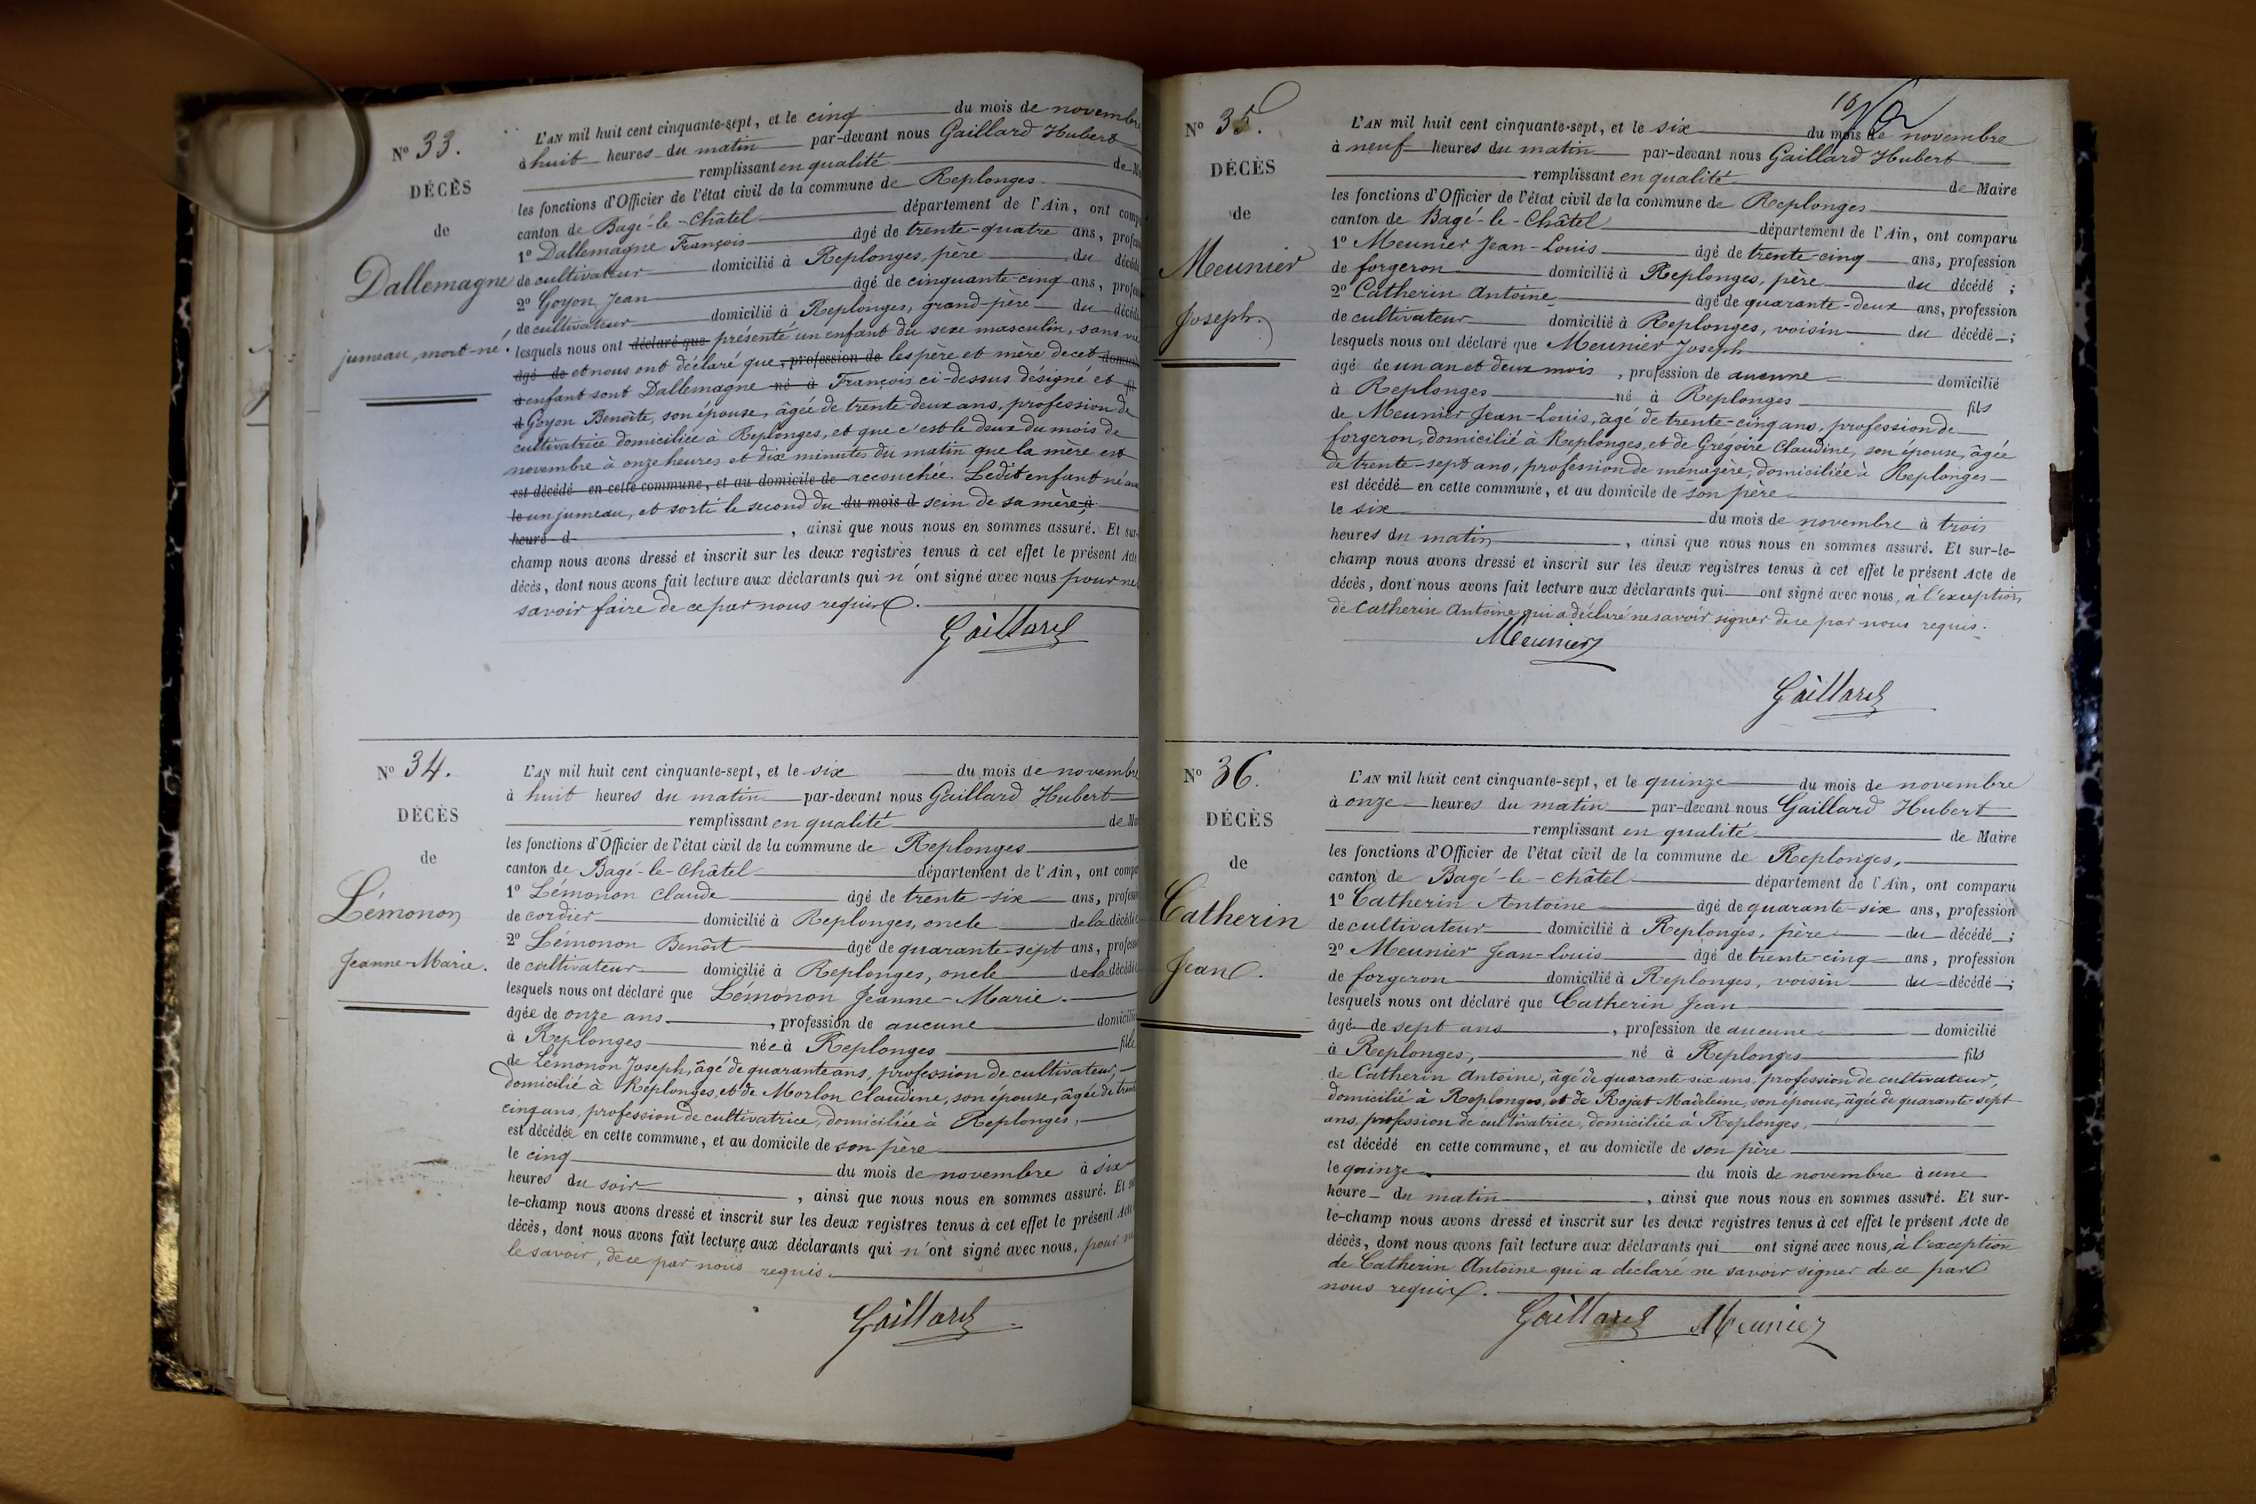 N° 33.
DÉCÈS
de
Dallemagne
jumeau, mort-né.
L'AN mil huit cent cinquante-sept, et le cinq du mois de novembre
à huit heures du matin par-devant nous Gaillard Hubert
remplissant en qualité de
les fonctions d'Officier de l'état civil de la commune de Replonges
canton de Bagé-le-Châtel département de l'Ain, ont
1° Dallemagne François âgé de trente-quatre ans,
de cultivateur domicilié à Replonges, père du
2° Goyon Jean âgé de cinquante-cinq ans,
de cultivateur domicilié à Replonges, grand-père du
lesquels nous ont déclaré que présenté un enfant du sexe masculin, sans vie
âgé de et nous ont déclaré que, profession de les père et mère de cet
à enfant sont Dallemagne né à François ci-dessus désigné et
d Goyon Benoîte, son épouse, âgée de trente-deux ans, profession de
cultivatrice domiciliée à Replonges, et que c'est le deux du mois de
novembre à onze heures et dix minutes du matin que la mère est
est décédé en cette commune, et au domicile de accouchée. Ledit enfant né
le un jumeau, et sorti le second du du mois d sein de sa mère, à
heure d , ainsi que nous nous en sommes assuré. Et sur-
champ nous avons dressé et inscrit sur les deux registres tenus à cet effet le présent Acte
décès, dont nous avons fait lecture aux déclarants qui n'ont signé avec nous pour ne
savoir faire de ce par nous requis.
Gaillard
N° 34.
DÉCÈS
de
Lémonon
Jeanne-Marie.
L'AN mil huit cent cinquante-sept, et le six du mois de novembre
à huit heures du matin par-devant nous Gaillard Hubert
remplissant en qualité de
les fonctions d'Officier de l'état civil de la commune de Replonges
canton de Bagé-le-Châtel département de l'Ain, ont
1° Lémonon Claude âgé de trente-six ans,
de cordier domicilié à Replonges, oncle de la
2° Lémonon Benoît âgé de quarante-sept ans,
de cultivateur domicilié à Replonges, oncle de la
lesquels nous ont déclaré que Lémonon Jeanne-Marie.
âgée de onze ans , profession de aucune
à Replonges née à Replonges fille
de Lémonon Joseph, âgé de quarante ans, profession de cultivateur,
domicilié à Replonges, et de Morlon Claudine, son épouse, âgée de trente
cinq ans, profession de cultivatrice, domiciliée à Replonges,
est décédée en cette commune, et au domicile de son père
le cinq du mois de novembre à six
heures du soir , ainsi que nous nous en sommes assuré. Et
le-champ nous avons dressé et inscrit sur les deux registres tenus à cet effet le présent Acte
décès, dont nous avons fait lecture aux déclarants qui n'ont signé avec nous, pour ne
le savoir, de ce par nous requis.
Gaillard
N° 35.
DÉCÈS
de
Meunier
Joseph.
L'AN mil huit cent cinquante-sept, et le six du mois de novembre
à neuf heures du matin par-devant nous Gaillard Hubert
remplissant en qualité de Maire
les fonctions d'Officier de l'état civil de la commune de Replonges
canton de Bagé-le-Châtel département de l'Ain, ont comparu
1° Meunier Jean-Louis âgé de trente-cinq ans, profession
de forgeron domicilié à Replonges, père du décédé ;
2° Catherin Antoine âgé de quarante-deux ans, profession
de cultivateur domicilié à Replonges, voisin du décédé ;
lesquels nous ont déclaré que Meunier Joseph
âgé de un an et deux mois , profession de aucune domicilié
à Replonges né à Replonges fils
de Meunier Jean-Louis, âgé de trente-cinq ans, profession de
forgeron, domicilié à Replonges, et de Grégoire Claudine, son épouse, âgée
de trente-sept ans, profession de ménagère, domiciliée à Replonges
est décédé en cette commune, et au domicile de son père
le six du mois de novembre à trois
heures du matin , ainsi que nous nous en sommes assuré. Et sur-le-
champ nous avons dressé et inscrit sur les deux registres tenus à cet effet le présent Acte de
décès, dont nous avons fait lecture aux déclarants qui ont signé avec nous, à l'exception
de Catherin Antoine qui a déclaré ne savoir signer de ce par nous requis.
Meunier
Gaillard
N° 36.
DÉCÈS
de
Catherin
Jean.
L'AN mil huit cent cinquante-sept, et le quinze du mois de novembre
à onze heures du matin par-devant nous Gaillard Hubert
remplissant en qualité de Maire
les fonctions d'Officier de l'état civil de la commune de Replonges,
canton de Bagé-le-Châtel département de l'Ain, ont comparu
1° Catherin Antoine âgé de quarante-six ans, profession
de cultivateur domicilié à Replonges, père du décédé ;
2° Meunier Jean-Louis âgé de trente-cinq ans, profession
de forgeron domicilié à Replonges, voisin du décédé ;
lesquels nous ont déclaré que Catherin Jean
âgé de sept ans , profession de aucune domicilié
à Replonges, né à Replonges fils
de Catherin Antoine, âgé de quarante-six ans, profession de cultivateur,
domicilié à Replonges, et de Rojat Madeleine, son épouse, âgée de quarante-sept
ans, profession de cultivatrice, domiciliée à Replonges,
est décédé en cette commune, et au domicile de son père
le quinze du mois de novembre à une
heure du matin , ainsi que nous nous en sommes assuré. Et sur-
le-champ nous avons dressé et inscrit sur les deux registres tenus à cet effet le présent Acte de
décès, dont nous avons fait lecture aux déclarants qui ont signé avec nous, à l'exception
de Catherin Antoine qui a déclaré ne savoir signer de ce par
nous requis.
Gaillard Meunier